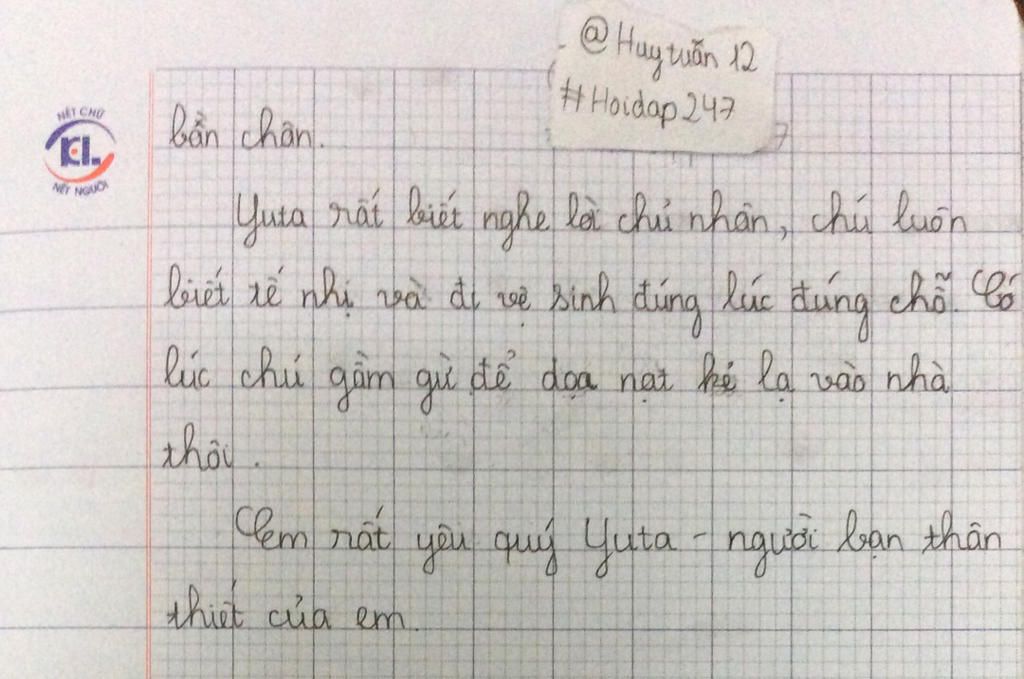 @Huytuấn 12
#Hoidap247
NÉT CHỮ
KL
NẾT NGƯỜI
bẩn chân.
Yuta rất biết nghe lời chủ nhân, chú luôn
biết tế nhị và đi vệ sinh đúng lúc đúng chỗ. Có
lúc chú gầm gừ để dọa nạt kẻ lạ vào nhà
thôi.
Em rất yêu quý Yuta - người bạn thân
thiết của em.